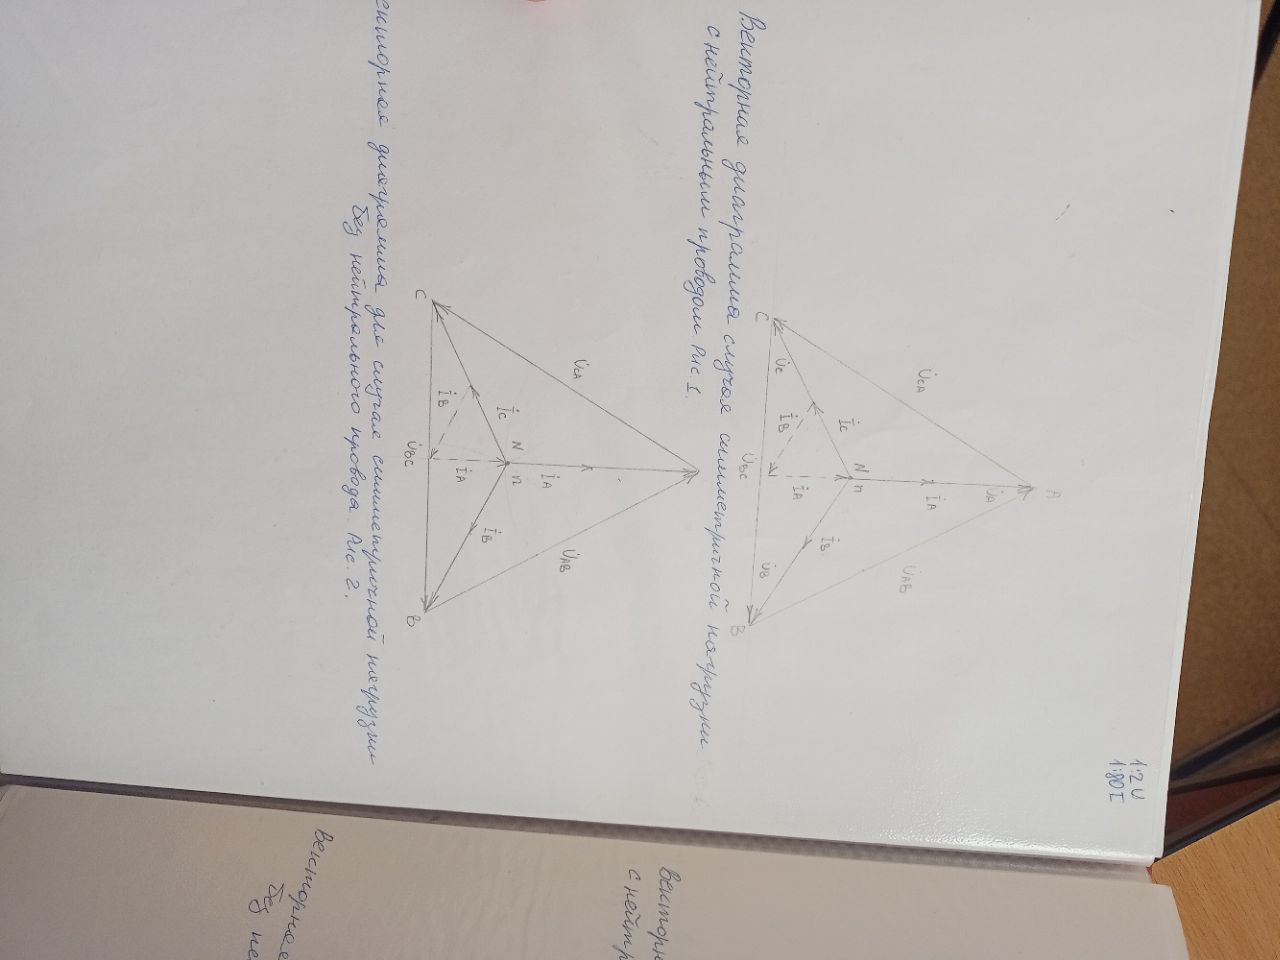 1:2 U
1:80 I
A
U̇A
İA
U̇CA
U̇AB
N n
İC
İB
İA
U̇C
İB
U̇B
C
U̇BC
B
Векторная диаграмма случая симметричной нагрузки
с нейтральным проводом Рис. 1.
U̇CA
U̇AB
İA
N n
İC
İB
İA
İB
C
U̇BC
B
екторная диаграмма для случая симметричной нагрузки
без нейтрального провода. Рис. 2.
Векторн
с нейтр
Векторная
без не